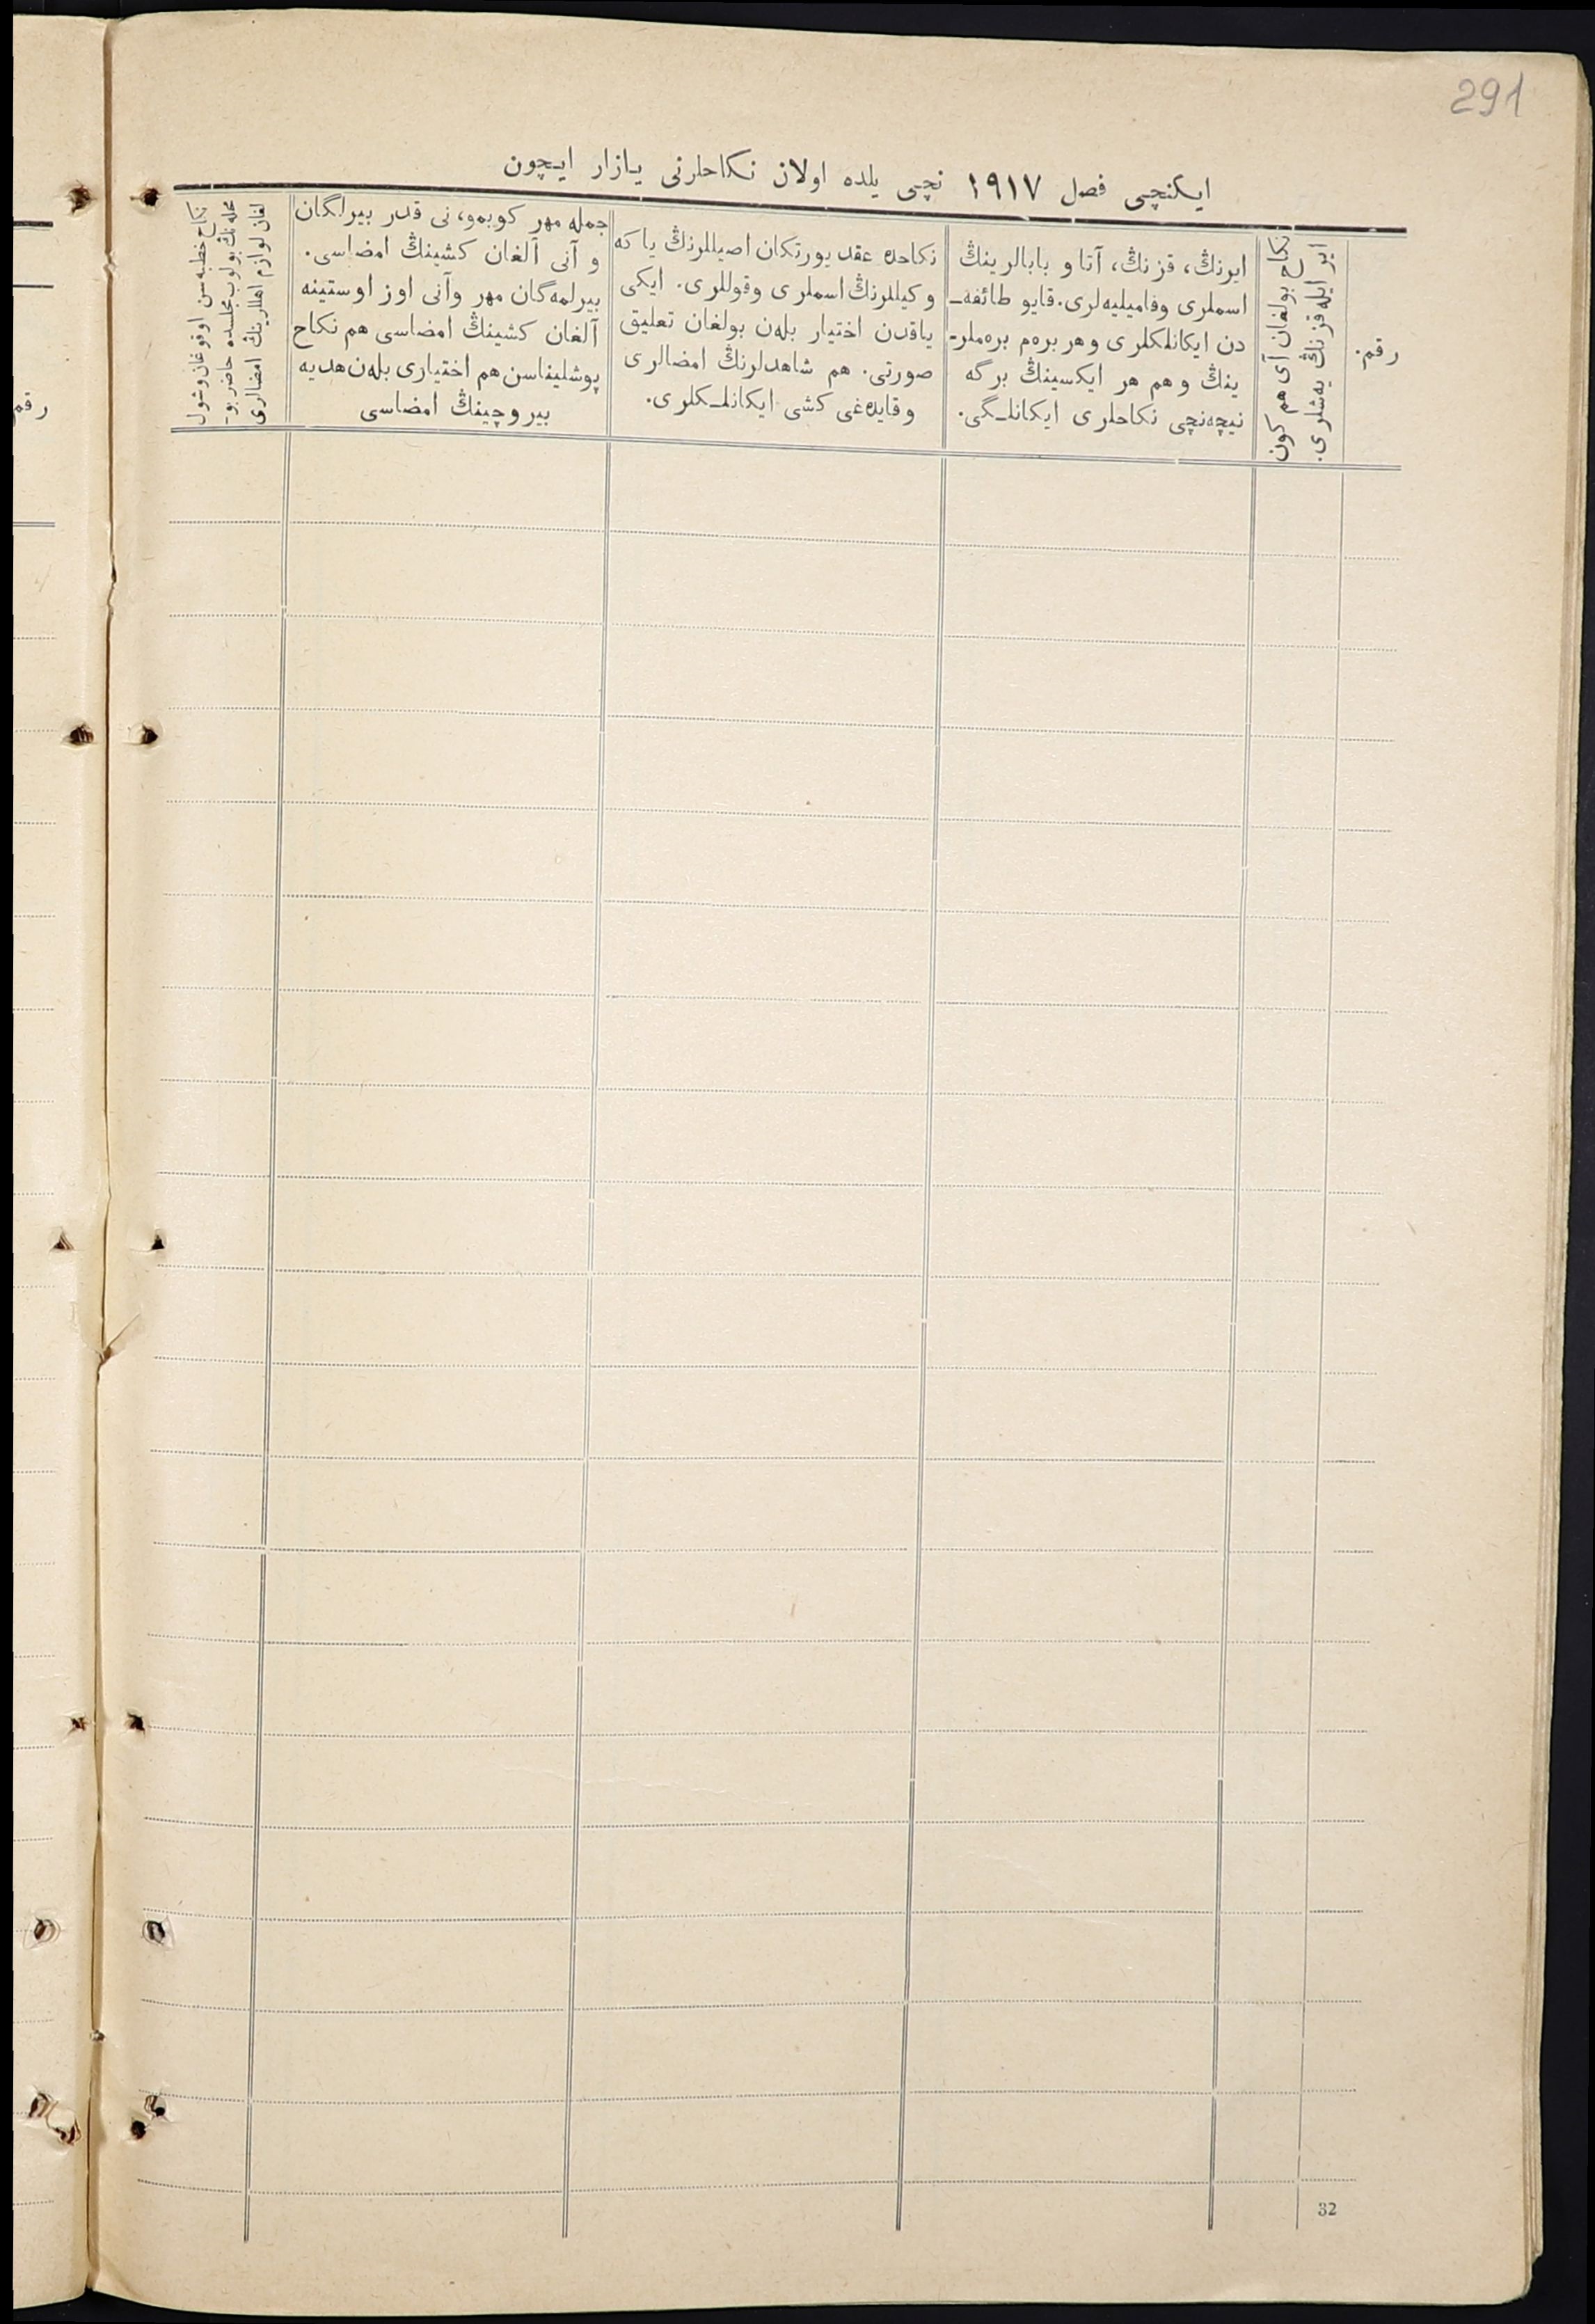 291
ایکنچی فصل ١٩١٧ نچی یلده اولان نکاحلرنی یازار ایچون
رقم.
ایر ایله قزنڭ یەشلری.
نکاح بولغان آی هم کون
ایرنڭ، قزنڭ، آتا و بابالرینڭ
اسملری وفامیلیەلری. قایو طائفەـ
دن ایکانلکلری و هر برەم برەملرـ
ینڭ و هم هر ایکسینڭ برگه
نیچەنچی نکاحلری ایکانلـگی.
نکاحده عقد یورتکان اصیللرنڭ یا که
وکیللرنڭ اسملری وقوللری. ایکی
یاقدن اختیار بلەن بولغان تعلیق
صورتی. هم شاهدلرنڭ امضالری
وقایدەغی کشی ایکانلـکلری.
جمله مهر کوبمو، نی قدر بیرلگان
و آنی آلغان کشینڭ امضاسی.
بیرلمەگان مهر وآنی اوز اوستینه
آلغان کشینڭ امضاسی هم نکاح
پوشلیناسن هم اختیاری بلەن هدیه
بیروچینڭ امضاسی
نکاح خطبەسن اوقوغان وشول
محلەنڭ بولوب مجلسده حاضر بوـ
لغان لوازم اهللرینڭ امضالری
رقم
32